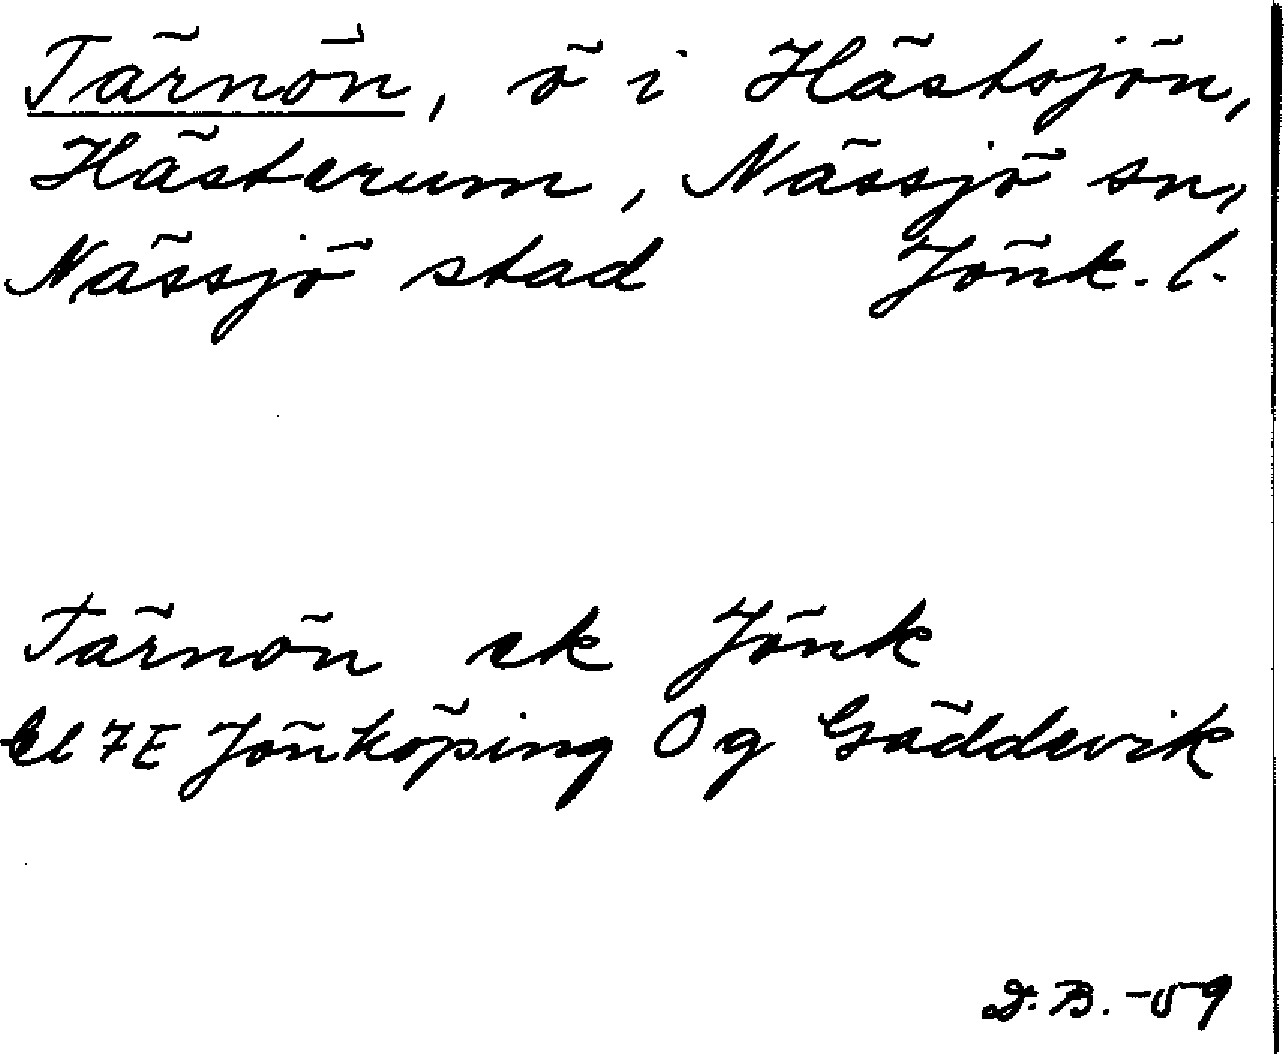 Tärnön, ö i Hästsjön,
Hästerum, Nässjö sn,
Nässjö stad Jönk. l.
Tärnön ek Jönk
Bl 7E Jönköping 0 g Gäddevik
D.B. -59